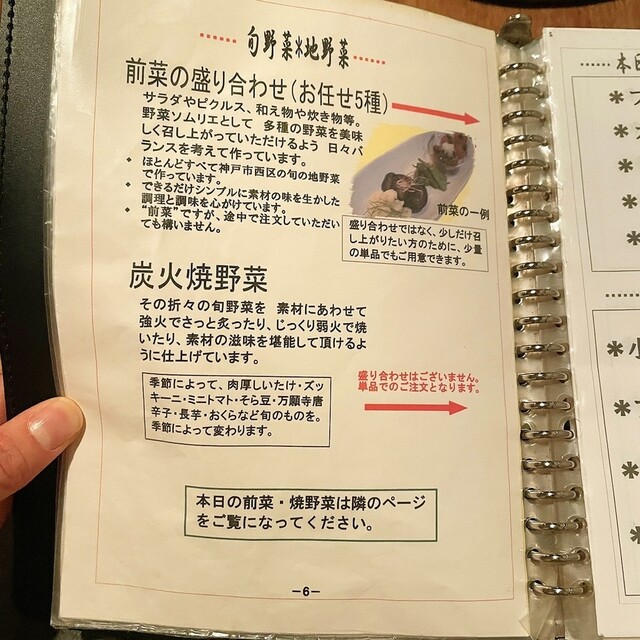 旬野菜*地野菜
前菜の盛り合わせ(お任せ5種)
サラダやピクルス、和え物や炊き物等。
野菜ソムリエとして 多種の野菜を美味
しく召し上がっていただけるよう 日々バ
ランスを考えて作っています。
・ ほとんどすべて神戸市西区の旬の地野菜
で作っています。
・ できるだけシンプルに素材の味を生かした
調理と調味を心がけています。
・ “前菜”ですが、途中で注文していただい
ても構いません。
前菜の一例
盛り合わせではなく、少しだけ召
し上がりたい方のために、少量
の単品でもご用意できます。
炭火焼野菜
その折々の旬野菜を 素材にあわせて
強火でさっと炙ったり、じっくり弱火で焼
いたり、素材の滋味を堪能して頂けるよ
うに仕上げています。
盛り合わせはございません。
単品でのご注文となります。
季節によって、肉厚しいたけ・ズッ
キーニ・ミニトマト・そら豆・万願寺唐
辛子・長芋・おくらなど旬のものを。
季節によって変わります。
本日の前菜・焼野菜は隣のページ
をご覧になってください。
-6-